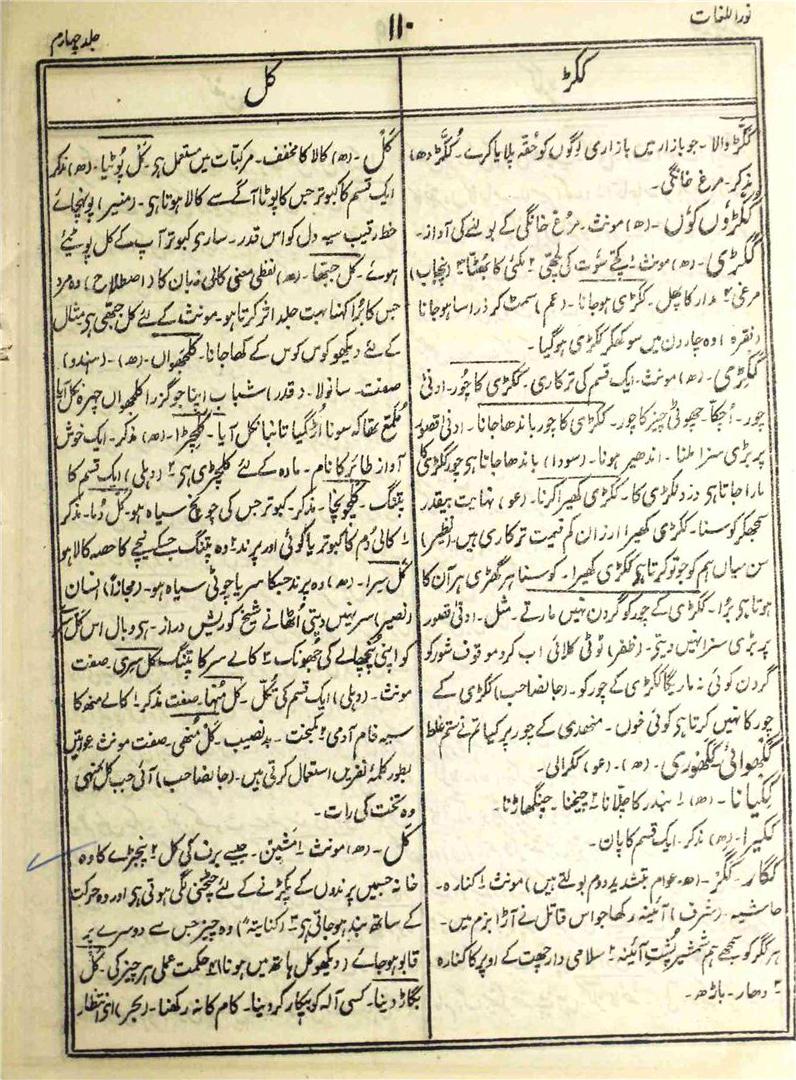 نوراللغات
۱۱۰
جلد چہارم
ککڑ
کل
ککڑ والا۔ جو بازار میں بازاری لوگوں کو حُقہ پلایا کرے۔ کُکَّڑ (ھ)
مذکر۔ مرغ خانگی۔
ککڑوں کوں۔ (ھ) مونث۔ مرغ خانگی کے بولنے کی آواز۔
ککڑی۔ (ھ) مونث ۱ کچے سوت کی لچھی ۲ مکئی کا بھٹا ۳ (پنجاب)
مرغی ۴ مدار کا پھل۔ ککڑی ہوجانا۔ (عم) سمٹ کر ذرا سا ہوجانا
(فقرہ) وہ چار دن میں سوکھکر ککڑی ہوگیا۔
ککڑی۔ (ھ) مونث۔ ایک قسم کی ترکاری۔ ککڑی کا چور۔ ادنیٰ
چور۔ اُچکا۔ چھوٹی چیز کا چور۔ ککڑی کا چور باندھا جانا۔ ادنیٰ قصور
پر بڑی سزا ملنا۔ اندھیر ہونا۔ (سودا) باندھا جاتا ہی چور ککڑی کا
مارا جاتا ہی دزد ککڑی کا۔ ککڑی کھیرا کرنا۔ (عو) نہایت بیقدر
سمجھکر کوسنا۔ ککڑی کھیرا ارزان کم قیمت ترکاری ہیں۔ (نظیر)
سن میاں ہم کو جو تو کرتا ہی ککڑی کھیرا۔ کوسنا ہر گھڑی ہر آن کا
ہوتا ہی بُرا۔ ککڑی کے چور کو گردن نہیں مارتے۔ مثل۔ ادنیٰ قصور
پر بڑی سزا نہیں دیتی۔ (ظفر) ٹوٹی کلائی اب کر دو موقوف شور کو
گردن کوئی نہ ماریگا ککڑی کے چور کو۔ (جانصاحب) ککڑی کے
چور کا نہیں کرتا ہی کوئی خوں۔ منھدی کے چور پر کیا تم نے ستم غلط
ککھوائی ککھوری۔ (ھ)۔ (عو) ککرالی۔
ککیانا۔ (ھ) ۱ بندر کا چلّانا ۲ چیخنا۔ چنگھاڑنا۔
ککیرا۔ (ھ) مذکر۔ ایک قسم کا پان۔
ککار۔ ککر۔ (ھ۔ عوام بتشدید دوم بولتے ہیں) مونث ۱ کنارہ۔
حاشیہ۔ (شرف) آئینہ رکھا جو اس قاتل نے آڑا بزم میں۔
ہر ککر کو سمجھے ہم شمشیر پُشتِ آئینہ ۲ سلامی دار چھت کے اوپر کا کنارہ
۳ دھار۔ باڑھ۔
کَل۔ (ھ) کالا کا مخفف۔ مرکبات میں مستعمل ہی۔ کل پوٹیا۔ (ھ) مذکر
ایک قسم کا کبوتر جس کا پوٹا آگے سے کالا ہوتا ہی۔ (منیر) پہنچائے
خط رقیب سیہ دل کو اس قدر۔ ساری کبوتر آپ کے کل پوٹیے
ہوئے۔ کل جبھا۔ (ھ) لفظی معنی کالی زبان کا (اصطلاح) وہ مرد
جس کا بُرا کہنا بہت جلد اثر کرتا ہو۔ مونث کے لئے کل جبھی ہی مثال
کے لئے دیکھو کوس کوس کے کھا جانا۔ کلجھواں۔ (ھ)۔ (ہندو)
صفت۔ سانولا۔ (قدر) شباب اپنا جو گزرا کلجھواں چہرہ نکل آیا
ملمع تھا کہ سونا اُڑ گیا تانبا نکل آیا۔ کلچڑا۔ (ھ) مذکر۔ ایک خوش
آواز طائر کا نام۔ مادہ کے لئے کلچڑی ہی ۲ (دہلی) ایک قسم کا
پتنگ۔ کلچونچا۔ مذکر۔ کبوتر جس کی چونچ سیاہ ہو۔ کل دُما۔ مذکر
۱ کالی دم کا کبوتر یا کوئی اور پرند ۲ وہ پتنگ جسکے نیچے کا حصہ کالا ہو
کل سرا۔ (ھ) وہ پرند جسکا سر یا چوٹی سیاہ ہو۔ (مجازاً) انسان
(نصیر) سر نہیں دیتی اُٹھانے شیخ کو ریش دراز۔ ہی وبال اس کل سرے
کو اپنی پُچھالے کی جھونک ۲ کالے سر کا پتنگ کل سری صفت
مونث۔ (دہلی) ایک قسم کی تکّل۔ کل مُنہا۔ صفت مذکر ۱ کالے منھ کا
سیہ فام آدمی ۲ کمبخت۔ بدنصیب۔ کل مُنھی۔ صفت مونث عورتیں
بطور کلمۂ نفریں استعمال کرتی ہیں۔ (جانصاحب) آئی جب کلمُنہی
وہ تخت کی رات۔
کل۔ (ھ) مونث ۱ مشین۔ جیسے برف کی کل ۲ پنجڑے کا وہ
خانہ جسمیں پرندوں کے پکڑنے کے لئے چٹخنی لگی ہوتی ہی اور وہ حرکت
کے ساتھ بند ہوجاتی ہی ۳ (کنایتہً) وہ چیز جس سے دوسرے پر
قابو ہوجائے (دیکھو کل ہاتھ میں ہونا) ۴ حکمت عملی ہر چیز کی۔ کل
بگاڑ دینا۔ کسی آلہ کو بیکار کر دینا۔ کام کا نہ رکھنا۔ (بحر) ای انتظار